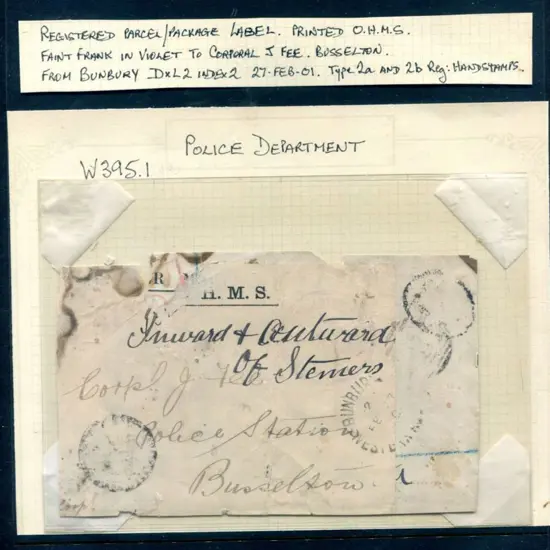 REGISTERED PARCEL/PACKAGE LABEL. PRINTED O.H.M.S.
FAINT FRANK IN VIOLET TO CORPORAL J FEE. BUSSELTON.
FROM BUNBURY DxL2 INDEX2 27-FEB-01. Type 2a AND 2b Reg: HANDSTAMPS.
POLICE DEPARTMENT
W395.1
R
H. M. S.
Inward & Outward
Of Stemers
Corpl J Fee
Police Station
Busselton
BUNBURY
WESTERN
Corp